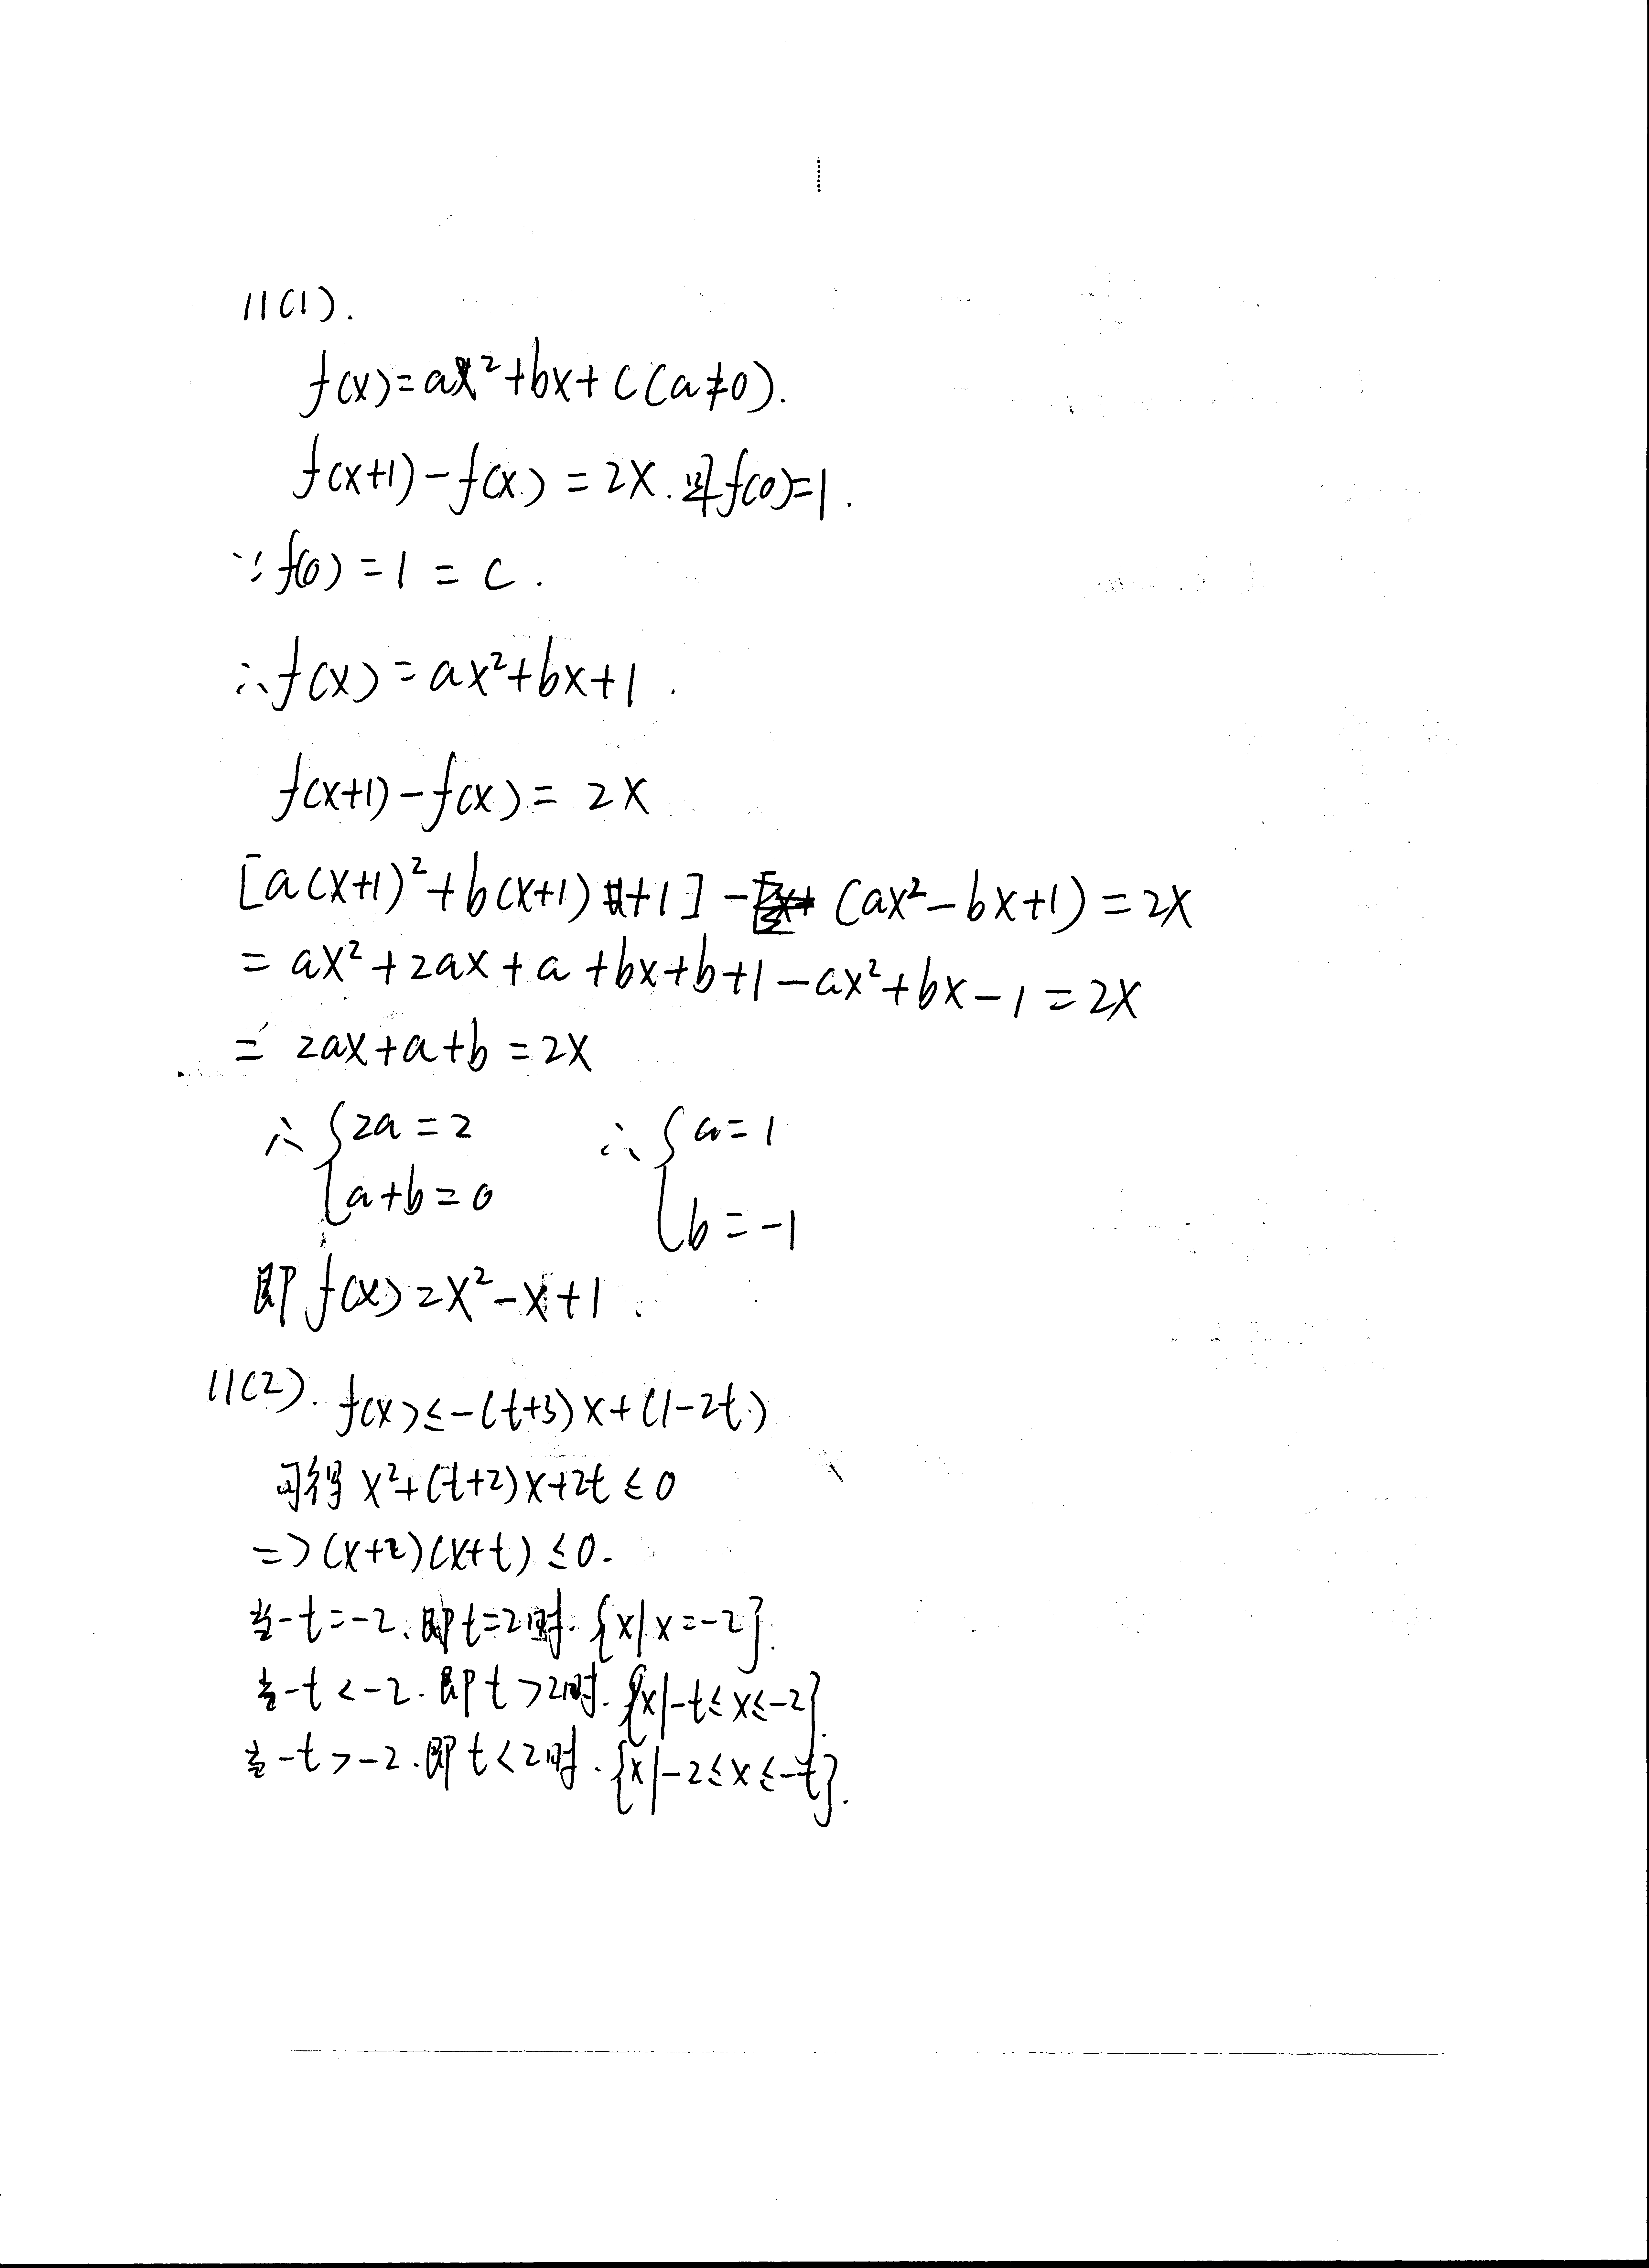 11(1).
f(x)=ax²+bx+c(a≠0).
f(x+1)-f(x)=2x.且f(0)=1.
∵f(0)=1=c.
∴f(x)=ax²+bx+1.
f(x+1)-f(x)=2x
[a(x+1)²+b(x+1)+1]-(ax²-bx+1)=2x
=ax²+2ax+a+bx+b+1-ax²+bx-1=2x
=2ax+a+b=2x
∴{2a=2 ∴{a=1
a+b=0 b=-1
即f(x)=x²-x+1.
11(2). f(x)≤-(t+3)x+(1-2t)
可得x²+(t+2)x+2t≤0
=>(x+2)(x+t)≤0.
当-t=-2.即t=2时.{x|x=-2}.
当-t<-2.即t>2时.{x|-t≤x≤-2}.
当-t>-2.即t<2时.{x|-2≤x≤-t}.